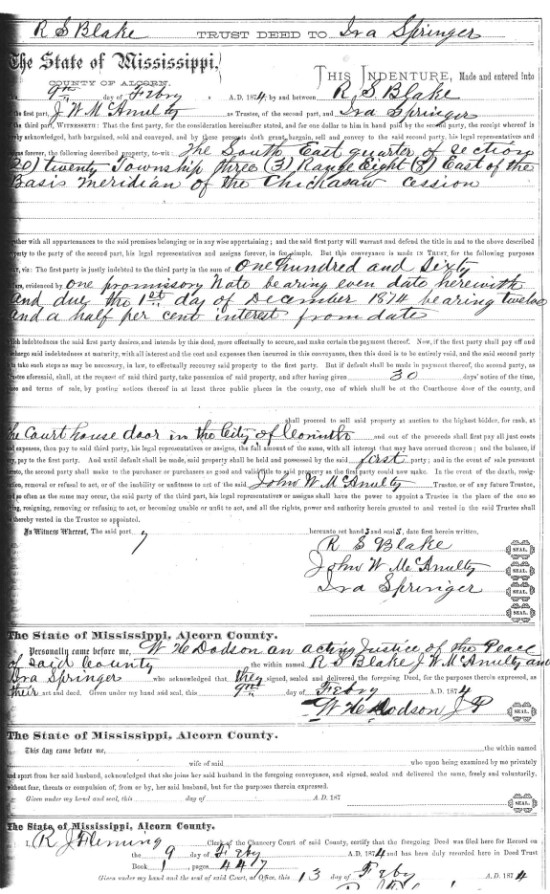 R S Blake TRUST DEED TO Iva Springer
The State of Mississippi,
COUNTY OF ALCORN.
THIS INDENTURE, Made and entered into
9th day of Febry A.D. 1874; by and between R S Blake
the first part, J W McAnulty as Trustee, of the second part, and Iva Springer
of the third part, WITNESSETH: That the first party, for the consideration hereinafter stated, and for one dollar to him in hand paid by the second party, the receipt whereof is
hereby acknowledged, hath bargained, sold and conveyed, and by these presents doth grant, bargain, sell and convey to the said second party, his legal representatives and
assigns forever, the following described property, to-wit: The South East quarter of section
20) twenty Township three (3) Range Eight (8) East of the
Basis meridian of the Chickasaw cession
together with all appurtenances to the said premises belonging or in any wise appertaining; and the said first party will warrant and defend the title in and to the above described
property to the party of the second part, his legal representatives and assigns forever, in fee simple. But this conveyance is MADE IN TRUST, for the following purposes
viz: The first party is justly indebted to the third party in the sum of One hundred and sixty
evidenced by one promissory Note bearing even date herewith
and due the 1st day of December 1874 bearing twelve
and a half per cent interest from date
which indebtedness the said first party desires, and intends by this deed, more effectually to secure, and make certain the payment thereof. Now, if the first party shall pay off and
discharge said indebtedness at maturity, with all interest and the cost and expenses then incurred in this conveyance, then this deed is to be entirely void, and the said second party
is to take such steps as may be necessary, in law, to effectually reconvey said property to the first party. But if default shall be made in payment thereof, the second party, as
Trustee aforesaid, shall, at the request of said third party, take possession of said property, and after having given 30 days' notice of the time,
place and terms of sale, by posting notices thereof in at least three public places in the county, one of which shall be at the Courthouse door of the county, and
shall proceed to sell said property at auction to the highest bidder, for cash, at
the Court house door in the City of Corinth and out of the proceeds shall first pay all just costs
and expenses, then pay to said third party, his legal representatives or assigns, the full amount of the same, with all interest that may have accrued thereon; and the balance, if
any, pay to the first party. And until default shall be made, said property shall be held and possessed by the said first party; and in the event of sale pursuant
hereto, the second party shall make to the purchaser or purchasers as good and valid title to said property as the first party could now make. In the event of the death, resignation,
removal or refusal to act, or of the inability or unfitness to act of the said John W McAnulty Trustee, or of any future Trustee,
and so often as the same may occur, the said party of the third part, his legal representatives or assigns shall have the power to appoint a Trustee in the place of the one so
dying, resigning, removing or refusing to act, or becoming unable or unfit to act, and all the rights, power and authority herein granted to and vested in the said Trustee shall
be thereby vested in the Trustee so appointed.
In Witness Whereof, The said part y hereunto set hands and seals, date first herein written.
R S Blake SEAL.
John W McAnulty SEAL.
Iva Springer SEAL.
SEAL.
The State of Mississippi, Alcorn County.
Personally came before me, W H Dodson an acting Justice of the Peace
of said County the within named R S Blake J W McAnulty and
Iva Springer who acknowledged that they signed, sealed and delivered the foregoing Deed, for the purposes therein expressed, as
their act and deed. Given under my hand and seal, this 9th day of Febry A.D. 1874
W H Dodson J P SEAL.
The State of Mississippi, Alcorn County.
This day came before me, the within named
wife of said who upon being examined by me privately
and apart from her said husband, acknowledged that she joins her said husband in the foregoing conveyance, and signed, sealed and delivered the same, freely and voluntarily,
without fear, threats or compulsion of, from or by, her said husband, but for the purposes therein expressed.
Given under my hand and seal, this day of A.D. 187 SEAL.
The State of Mississippi, Alcorn County.
I, R J Fleming Clerk of the Chancery Court of said County, certify that the foregoing Deed was filed here for Record on
the 9 day of Febry A.D. 1874 and has been duly recorded here in Deed Trust
Book 1 pages 447
Given under my hand and the seal of said Court, at Office, this 13 day of Febry A.D. 1874